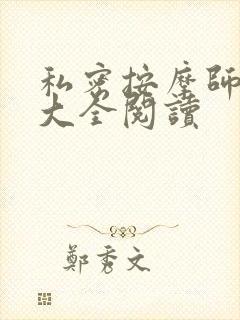 私密按摩師
大全閱讀
鄭秀文